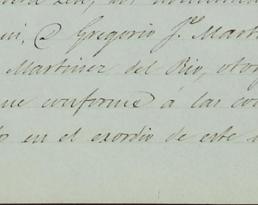 Gregorio J. Mart
Martinez del Rio, otor
ue conforme á las co
o en el exordio de este